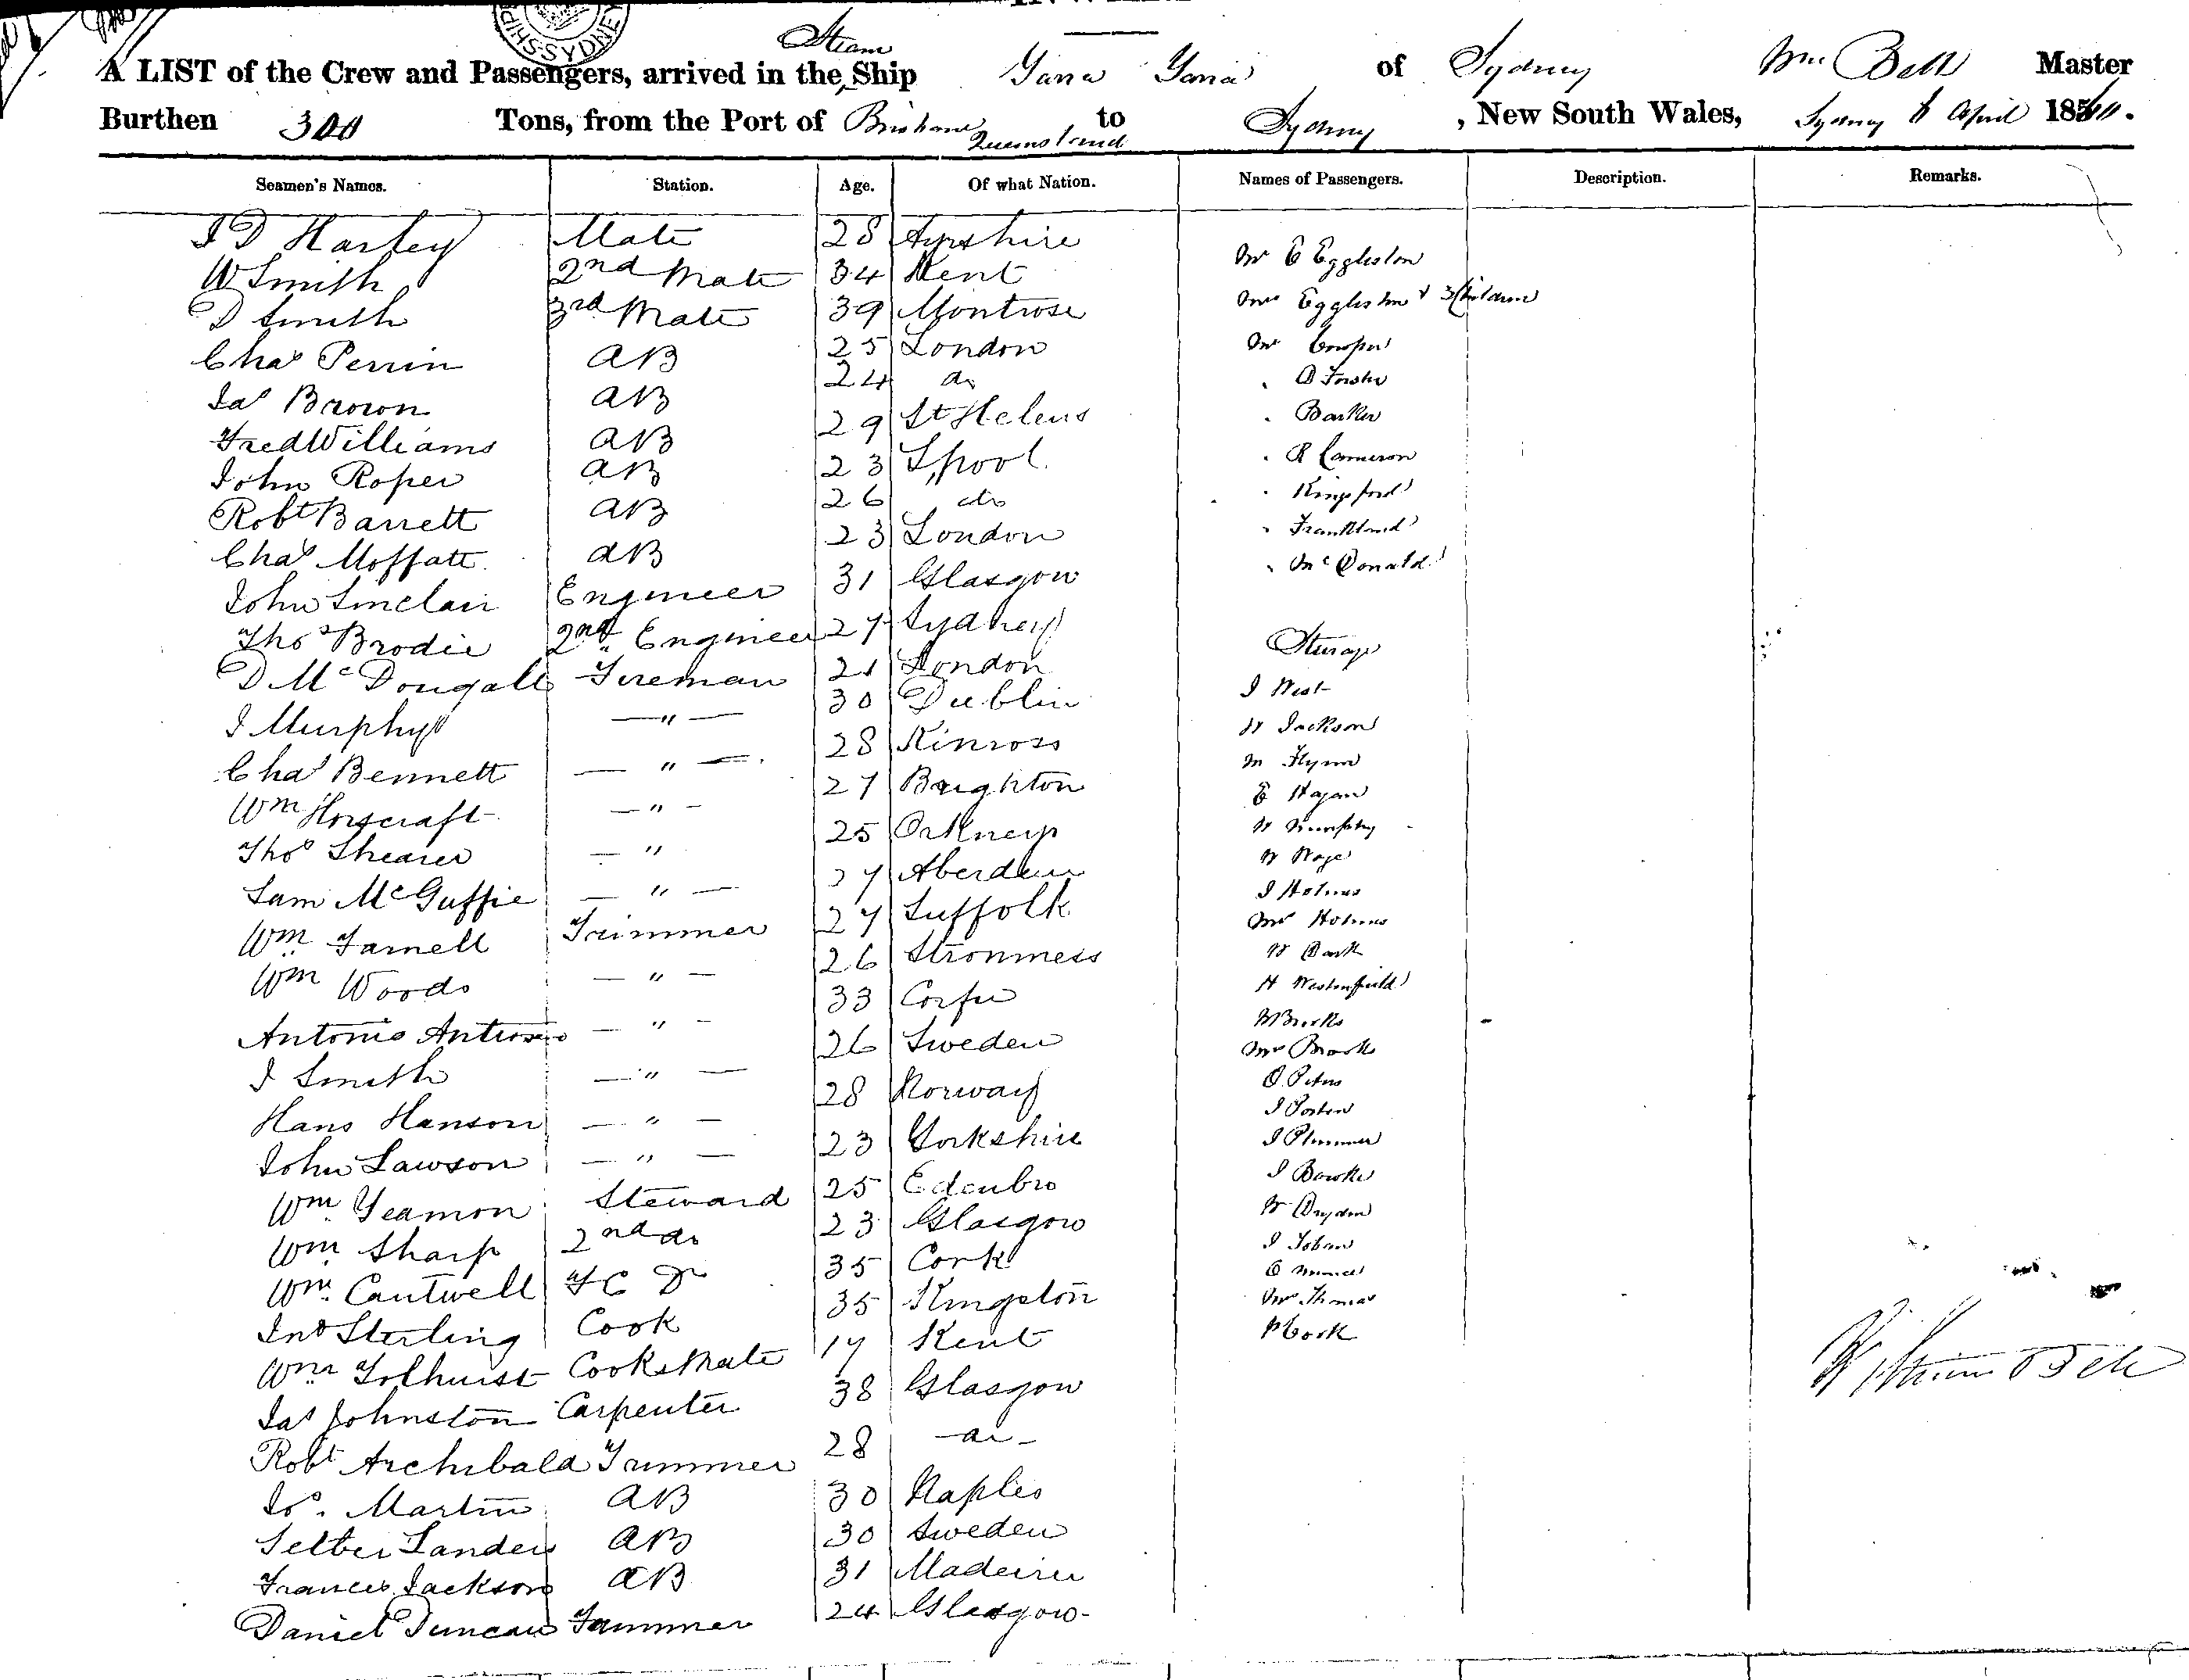 SHIPS SYDNEY
Steam
A LIST of the Crew and Passengers, arrived in the Ship Yara Yara of Sydney Wm Bell Master
Burthen 300 Tons, from the Port of Brisbane Queensland to Sydney, New South Wales, Sydney April 18
Seamen's Names. Station. Age. Of what Nation. Names of Passengers. Description. Remarks.
J D Harley Mate 28 Ayrshire
W Smith 2nd Mate 34 Kent Mr E Eggleston
D Smith 3rd Mate 39 Montrose Mrs Eggleston & 3 Children
Chas Perrin AB 25 London Mr Cowper
Jas Brown AB 24 do " Forster
Fred Williams AB 29 St Helens " Barker
John Roper AB 23 Lpool " R Cameron
Robt Barrett AB 26 do " Kingsford
Chas Moffatt AB 23 London " Frankland
John Sinclair Engineer 31 Glasgow " McDonald
Thos Brodie 2nd Engineer 27 Sydney Steerage
D McDougall Fireman 21 London J West
J Murphy — " — 30 Dublin W Jackson
Chas Bennett — " — 28 Kinross M Flynn
Wm Horscraft — " — 27 Brighton E Hagan
Thos Shearer — " 25 Orkney W Murphy
Sam McGuffie — " — 27 Aberdeen W
Wm Farnell Trimmer 27 Suffolk J Holmes
Wm Woods — " — 26 Stromness Mrs Holmes
Antonio — " — 33 Corfu W
J Smith — " — 26 Sweden H Westenfield
Hans Hanson — " — 28 Norway Brooks
John Lawson — " — 23 Yorkshire Mrs Brooks
Wm Yeamon Steward 25 Edenbro Peters
Wm Sharp 2nd do 23 Glasgow J
Wm Cantwell F C Do 35 Cork J Plummer
Jno Sterling Cook 35 Kingston J Bourke
Wm Tolhurst Cooks Mate 17 Kent W Dryden
Jas Johnston Carpenter 38 Glasgow J
Robt Archibald Trimmer 28 — do —
Jos. Martin AB 30 Naples Mrs Thomas
Landers AB 30 Sweden P Cork
Francis Jackson AB 31 Madeira
Daniel Duncan Trimmer 24 Glasgow
William Bell